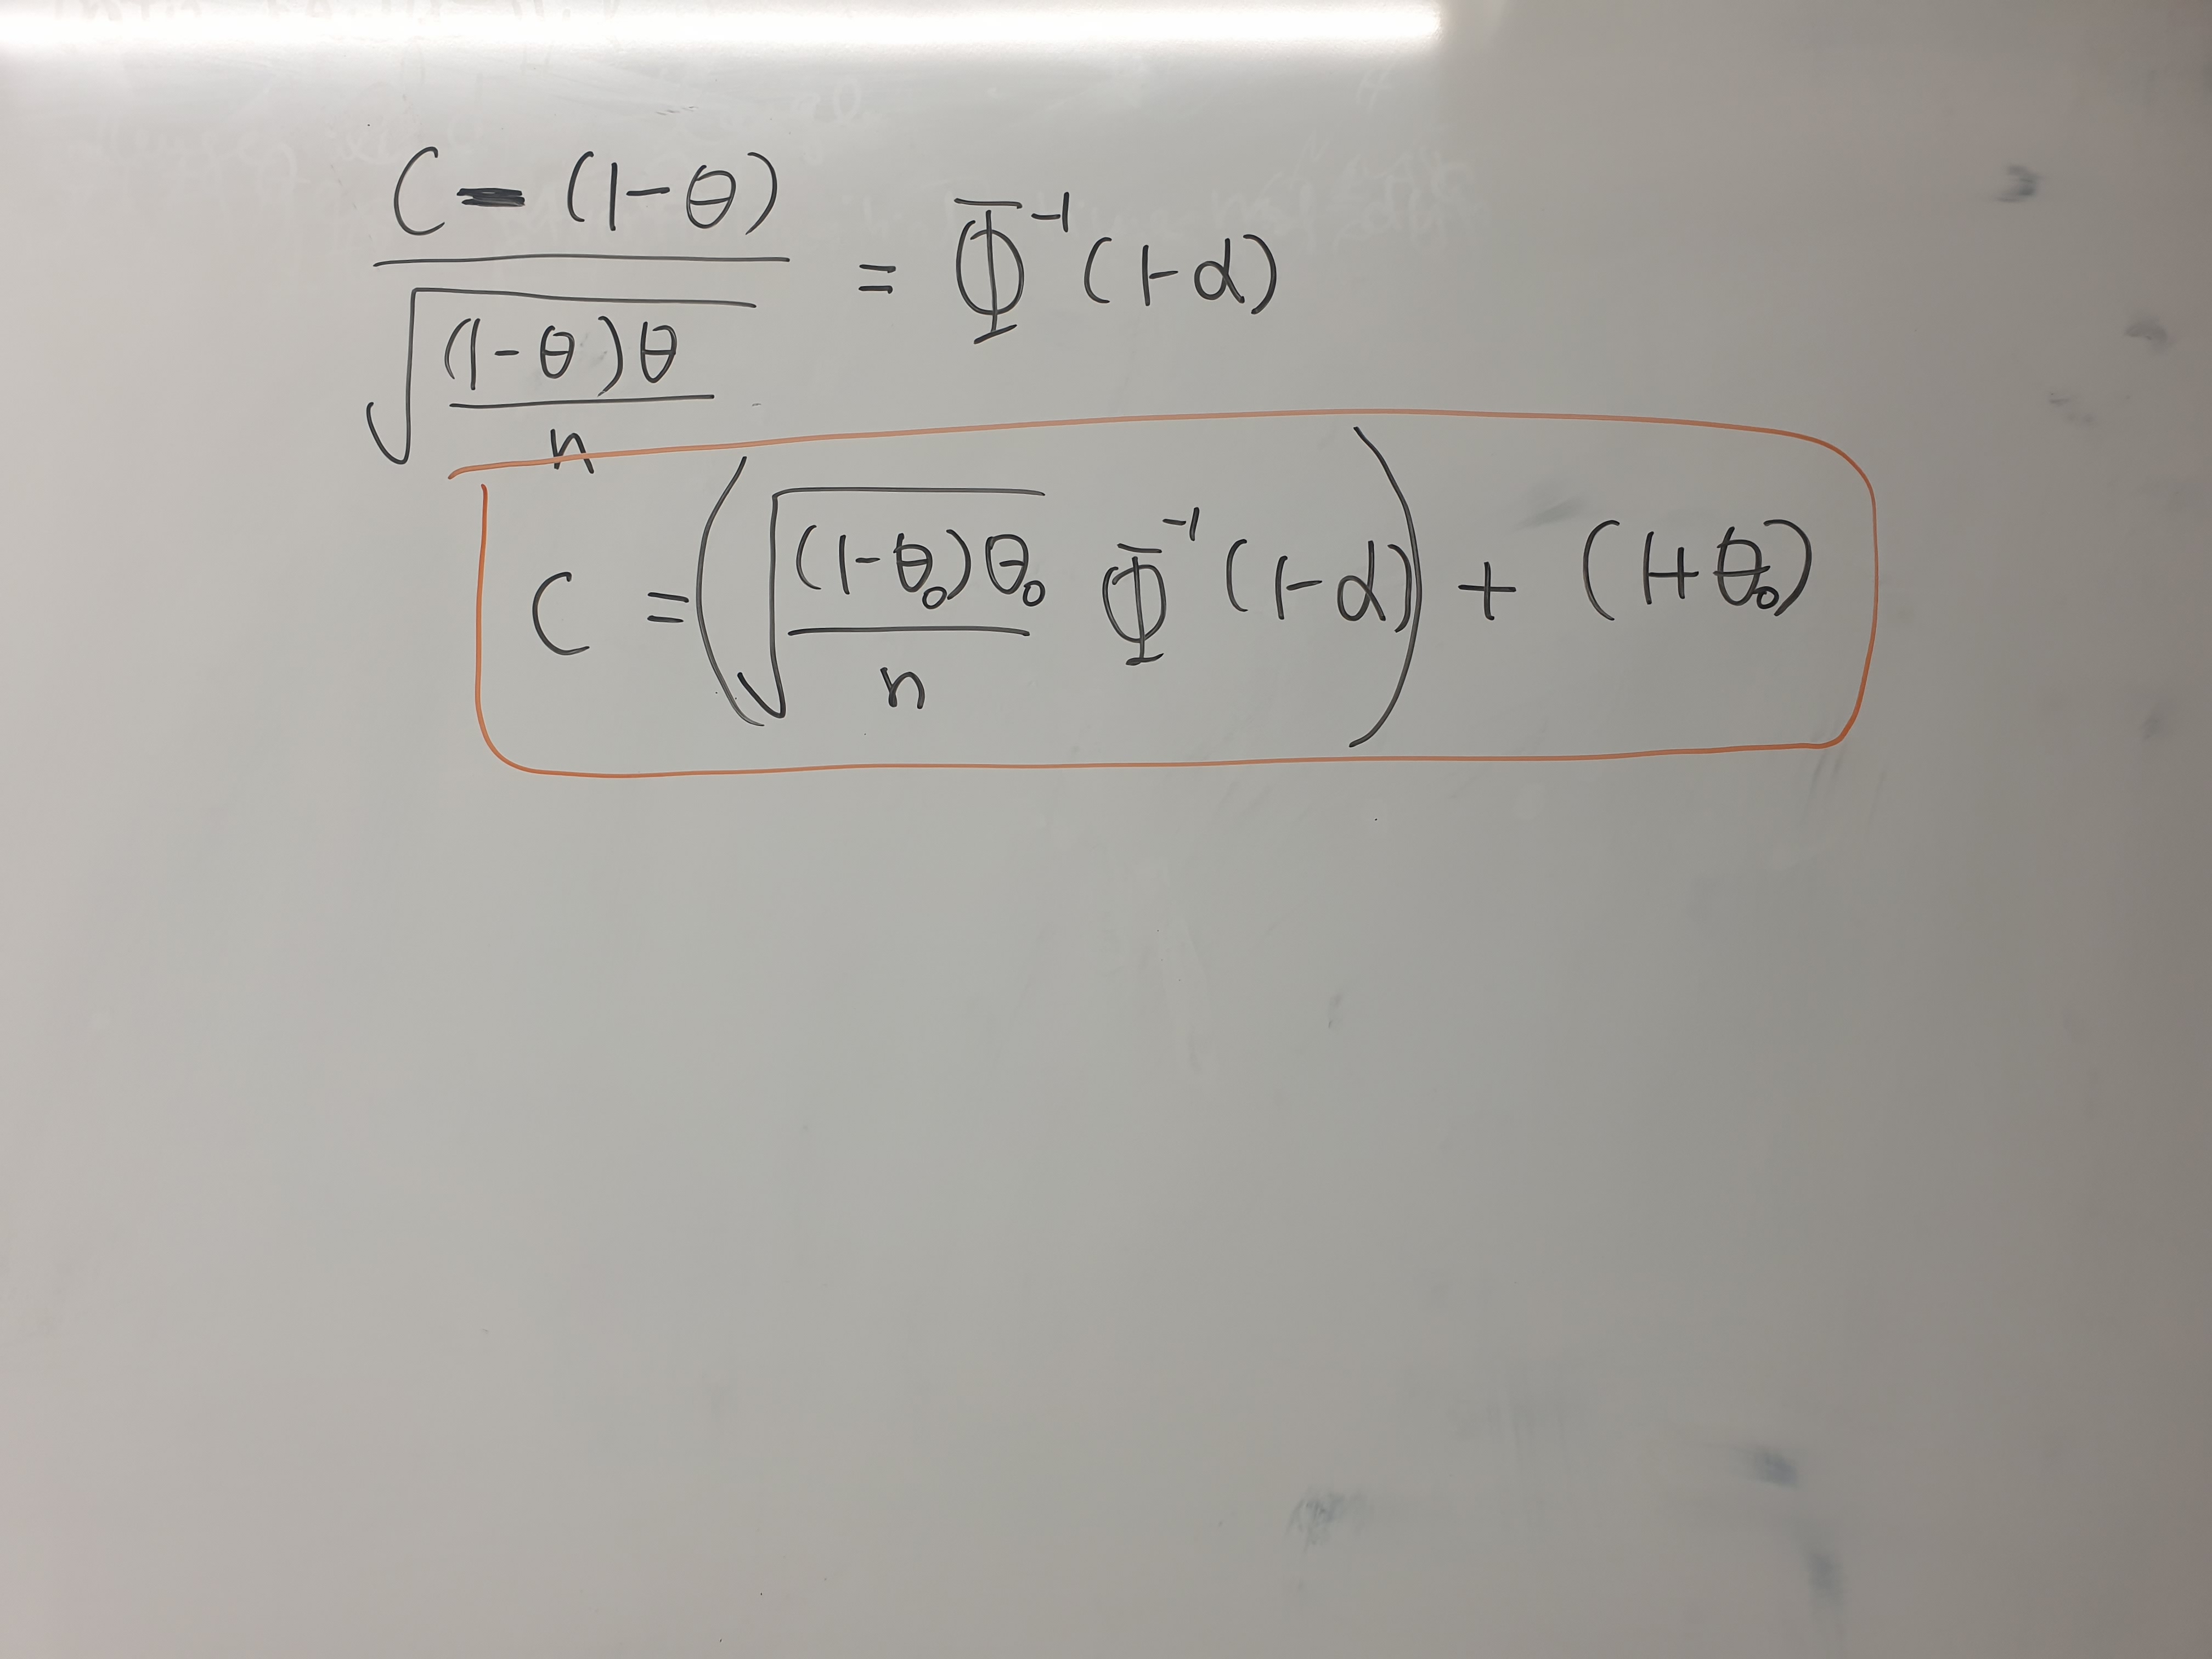 (C - (1-θ)) / √((1-θ)θ / n) = Φ⁻¹(1-α)
C = (√((1-θ₀)θ₀ / n) Φ⁻¹(1-α)) + (1+θ₀)